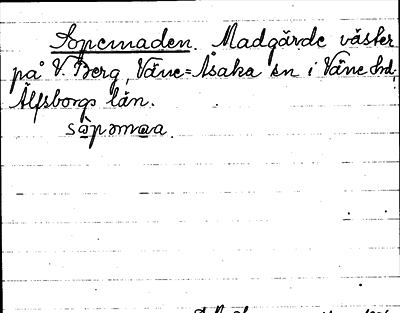 Sopemaden. Madgärde väster
på V. Berg, Väne=Åsaka sn i Väne hd,
Älfsborgs län.
sòpəmɑɑ.